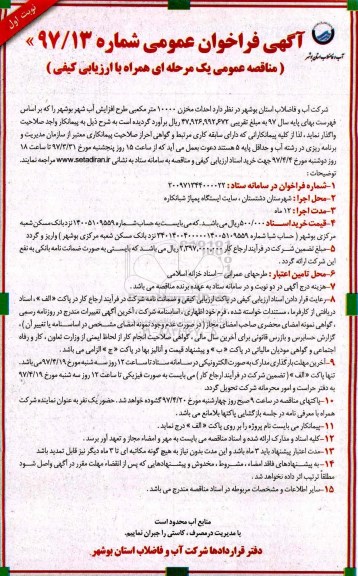 نوبت اول
آب و فاضلاب استان بوشهر
آگهی فراخوان عمومی شماره ۹۷/۱۳ »
( مناقصه عمومی یک مرحله ای همراه با ارزیابی کیفی )
شرکت آب و فاضلاب استان بوشهر در نظر دارد احداث مخزن ۱۰۰۰۰ متر مکعبی طرح افزایش آب شهر بوشهر را که بر اساس
فهرست بهای پایه سال ۹۷ به مبلغ تقریبی ۴۷,۹۲۶,۹۹۲,۶۷۲ ریال برآورد گردیده است به شرح ذیل به پیمانکار واجد صلاحیت
واگذار نماید، لذا از کلیه پیمانکارانی که دارای سابقه کاری مرتبط و گواهی احراز صلاحیت پیمانکاری معتبر از سازمان مدیریت و
برنامه ریزی در رشته آب و حداقل پایه ۵ هستند دعوت بعمل می آید که از ساعت ۱۵ روز پنجشنبه مورخ ۹۷/۳/۳۱ تا ساعت ۱۸
روز دوشنبه مورخ ۹۷/۴/۴ جهت خرید اسناد ارزیابی کیفی و مناقصه به سامانه ستاد به نشانی www.setadiran.ir مراجعه نمایند.
توضیحات :
۱-شماره فراخوان در سامانه ستاد : ۲۰۰۹۷۱۳۴۴۰۰۰۰۲۲
۲-محل اجرا : شهرستان دشتستان ، سایت ایستگاه پمپاژ شبانکاره
۳-مدت اجرا: ۱۲ ماه
۴-قیمت خرید اسناد : ۵۰۰/۰۰۰ ریال می باشد که می بایست به حساب شماره ۱۴۰۰۵۱۰۹۵۵۹ نزد بانک مسکن شعبه
مرکزی بوشهر ( حساب شبا شماره نزد بانک مسکن شعبه مرکزی بوشهر ) واریز و گردد
۵-مبلغ تضمین شرکت در فرآیند ارجاع کار : ریال می باشد که بایستی به صورت ضمانت نامه بانکی به نفع
این شرکت ارائه گردد .
۶-محل تامین اعتبار : طرحهای عمرانی – اسناد خزانه اسلامی
۷-هزینه درج آگهی در دو نوبت و در سامانه ستاد به عهده برنده مناقصه می باشد .
۸-رعایت قرار دادن اسناد ارزیابی کیفی در پاکت ارزیابی کیفی و ضمانت نامه شرکت در فرآیند ارجاع کار در پاکت « الف » ، اسناد
دریافتی از کارفرما ، مستندات خواسته شده ، فرم خود اظهاری ، اساسنامه شرکت ، آخرین آگهی تغییرات مندرج در روزنامه رسمی
، گواهی نمونه امضای محضری صاحب امضای مجاز ( در صورت عدم وجود نمونه امضای مشخص در اساسنامه یا تغییر آن ) ،
گزارش حسابرس و بازرس قانونی برای آخرین سال مالی ، گواهی صلاحیت انجام کار از لحاظ ایمنی از وزارت تعاون ، کار و رفاه
اجتماعی و گواهی مودیان مالیاتی در پاکت « ب » و پیشنهاد قیمت و آنالیز بها در پاکت « ج » الزامی می باشد .
۹-آخرین مهلت بارگذاری مدارک به صورت الکترونیکی در سامانه ستاد تا ساعت ۱۲ روز سه شنبه مورخ ۹۷/۰۴/۱۹ می باشد.
تنها پاکت « الف » ( تضمین شرکت در فرآیند ارجاع کار ) می بایست به صورت فیزیکی تا ساعت ۱۲ روز سه شنبه مورخ ۹۷/۴/۱۹
به دفتر حراست و امور محرمانه شرکت تحویل گردد.
۱۰-پاکتهای مناقصه در ساعت ۹ صبح روز چهارشنبه مورخ ۹۷/۴/۲۰ گشوده خواهد شد. حضور یک نفر به عنوان نماینده شرکت
همراه با معرفی نامه در جلسه بازگشایی پاکتها بلامانع می باشد .
۱۱-پیمانکار می بایست نام پروژه را بر روی پاکت « الف » درج نماید .
۱۲-کلیه اسناد و مدارک ارائه شده و اسناد مناقصه می بایست به مهر و امضاء مجاز و تعهد آور برسد .
۱۳-مدت اعتبار پیشنهاد باید ۳ ماه باشد و این مدت بدون نیاز به هیچ گونه مکاتبه ای تا ۳ ماه دیگر نیز قابل تمدید باشد
۱۴-به پیشنهادهای فاقد امضاء ، مشروط ، مخدوش و پیشنهادهایی که پس از انقضاء مهلت مقرر در آگهی واصل شود
مطلقاً ترتیب اثر داده نخواهد شد.
۱۵-سایر اطلاعات و مشخصات مربوطه در اسناد مناقصه مندرج می باشد .
منابع آب محدود است
با مدیریت در مصرف، کاستی را جبران نماییم.
دفتر قراردادها شرکت آب و فاضلاب استان بوشهر